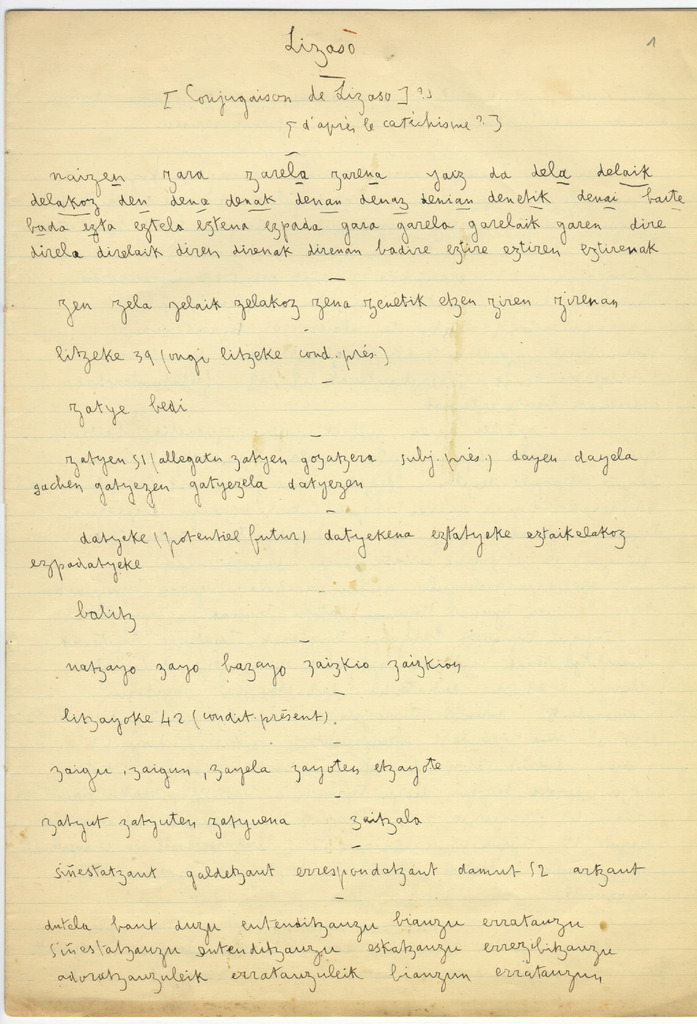 Lizaso
1
[Conjugaison de Lizaso] ?)
[d'après le catéchisme ?]
naizen zara zarela zarena yaiz da dela delaik
delakoz den dena denak denan denaz denian denetik denai baite
bada ezta eztela eztena ezpada gara garela garelaik garen dire
direla direlaik diren direnak direnan badire eztire eztiren eztirenak
zen zela zelaik zelakoz zena zenetik etzen ziren zirenan
litzeke 39 (ongi litzeke cond. prés.)
zatye bedi
zatyen 51 (allegatu zatyen gozatzera subj. prés.) dayen dayela
gachen gatyezen gatyezela datyezen
datyeke (potentiel futur) datyekena eztatyeke eztaikelakoz
ezpadatyeke
balitz
natzayo zayo bazayo zaizkio zaizkion
litzayoke 42 (condit. présent).
zaigu, zaigun, zayela zayoten etzayote
zatyut zatyuten zatyuena zaitzala
siñestatzaut galdetzaut errespondatzaut damut 52 artzaut
dutela baut duzu entenditzauzu bianzu erratauzu
siñestatzauzu entenditzauzu eskatzauzu errezibitzauzu
adoratzauzuleik erratauzuleik bianzun erratauzun